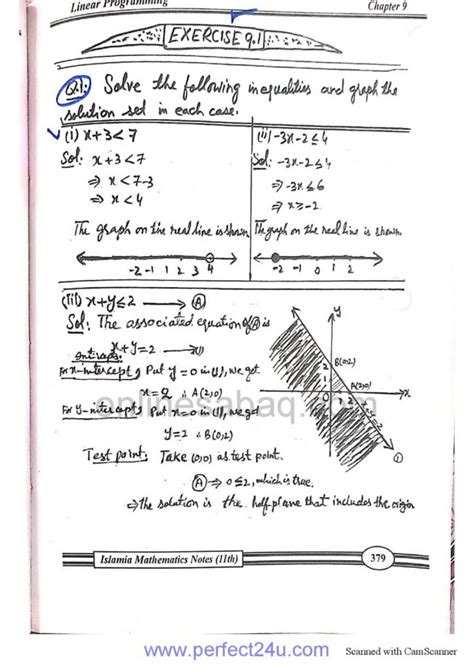 Linear Programming
Chapter 9
EXERCISE 9.1
Q1: Solve the following inequalities and graph the
solution set in each case.
(i) x+3<7
Sol: x+3<7
⇒ x<7-3
⇒ x<4
The graph on the real line is shown
-2 -1 1 2 3 4
(ii) -3x-2≤4
Sol: -3x-2≤4
⇒ -3x≤6
⇒ x≥-2
The graph on the real line is shown
-2 -1 0 1 2
(iii) x+y≤2 → Ⓐ
Sol: The associated equation of Ⓐ is
x+y=2 → (1)
Intercepts:
For x-intercept, Put y=0 in (1), we get
x=2 ∴ A(2,0)
For y-intercept, Put x=0 in (1), we get
y=2 ∴ B(0,2)
Test point: Take (0,0) as test point.
Ⓐ ⇒ 0≤2, which is true.
⇒ the solution is the half-plane that includes the origin
y
B(0,2)
A(2,0)
x
①
onlinesabaq.com
Islamia Mathematics Notes (11th)
379
www.perfect24u.com
Scanned with CamScanner